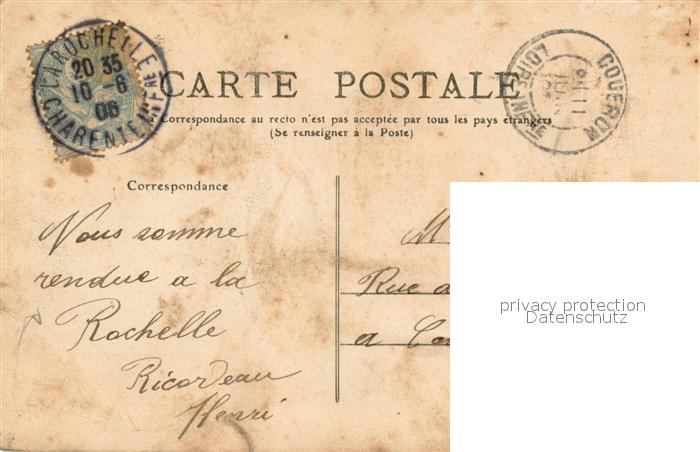 LA ROCHELLE
20 35
10 -6
06
CHARENTE INFRE
CARTE POSTALE
Correspondance au recto n'est pas acceptée par tous les pays étrangers
(Se renseigner à la Poste)
COUERON
LOIRE INFRE
Correspondance
Nous somme
rendue a la
Rochelle
Ricordeau
Henri
M
Rue d
a Co
privacy protection
Datenschutz